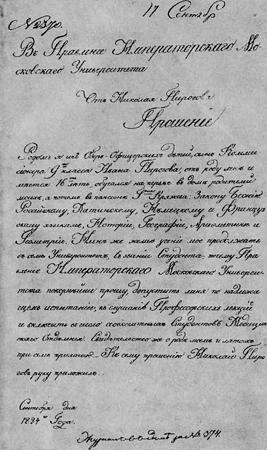 17 Сентбр
В Правление Императорскаго Мо-
сковскаго Университета
От Николая Пирогова
Прошение
Родом я из Обер-Офицерских детей, сын Комми-
сионера 9го класса Ивана Пирогова; от роду мне
шестнадцать обучался на пред в доме родителей
моих, а потом в пансионе Гна Закону Божию
Российскому, Латинскому, Немецкому и Француз
скому языкам, Истории, Географии, Арифметике и
Геометрии. Ныне же желаю учение мое продолжать
в сем Университете, в звании Студента; почему Пра
вление Императорскаго Московскаго Универси
тета покорнейше прошу, допустить меня по надлежа
щем испытании, к слушанию Профессорских лекций
и включить в число Студентов Медицин
скаго Отделения. Свидетельство же о роде моем и летах
при сем прилагаю. К сему прошению Николай Пиро
гов руку приложил.
Сентября дня
1824 Года.
№ 374.